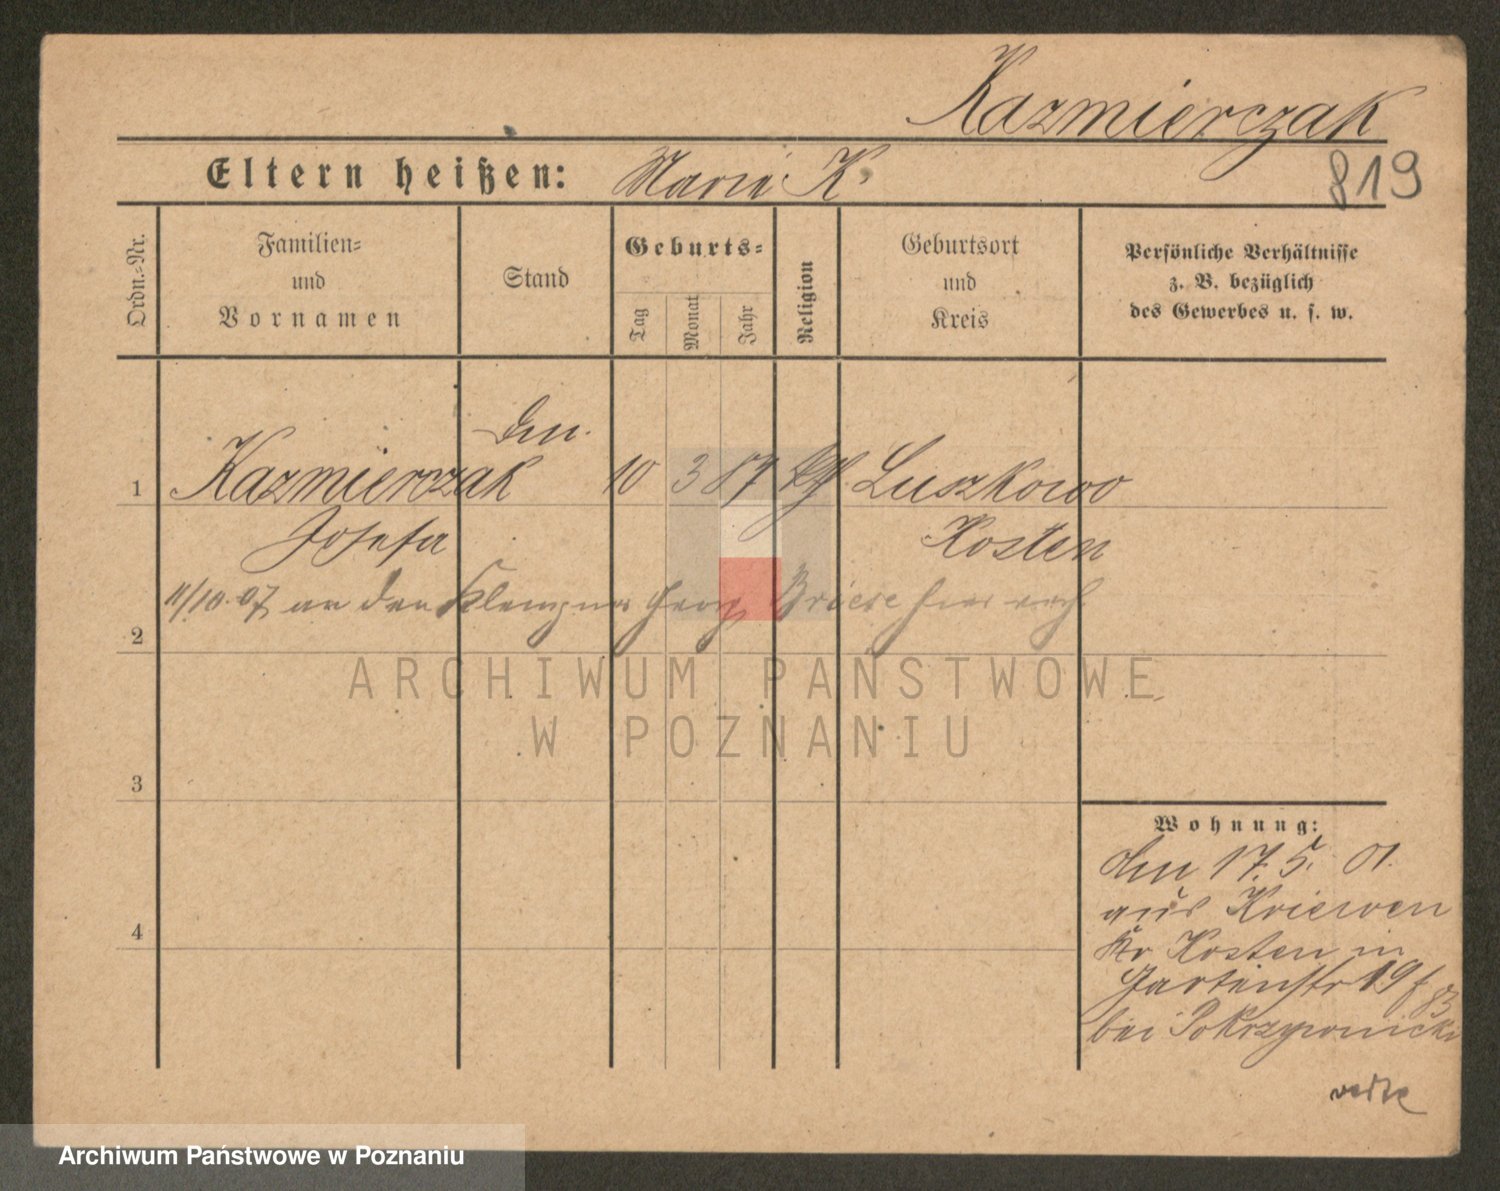 Kazmierczak
819
Eltern heißen: Marie K.
Ordn.-Nr.
Familien-
und
Vornamen
Stand
Geburts-
Tag
Monat
Jahr
Religion
Geburtsort
und
Kreis
Persönliche Verhältnisse
z. B. bezüglich
des Gewerbes u. s. w.
1 Kazmierczak 10 3 87 kth Luszkowo
Josefa Kosten
11/10.07 an den Klempner Georg hier verh.
2
3
4
ARCHIWUM PAŃSTWOWE
W POZNANIU
Wohnung:
den 17.5. 01.
aus Kriewen
Kr Kosten in
Gartenstr 19
bei Pokrzywnicki
Archiwum Państwowe w Poznaniu